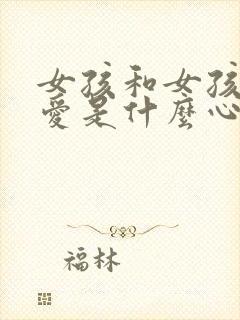 女孩和女孩
愛是什麼心
福林